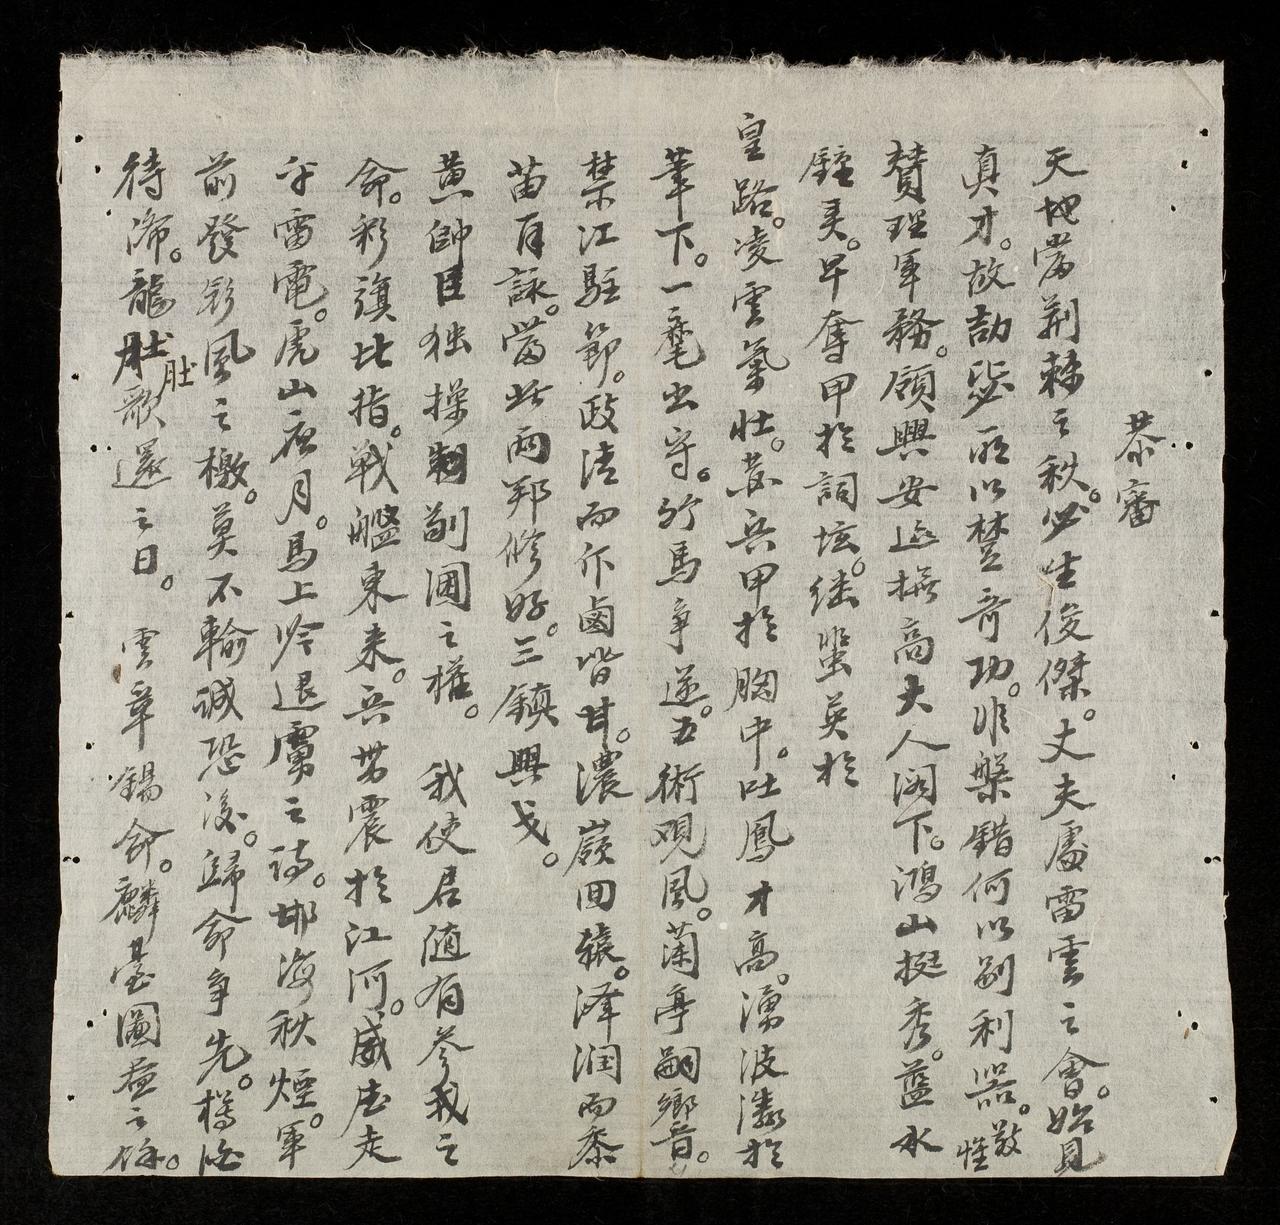 恭審
天地當荆棘之秋。必生俊傑。丈夫處雷雲之會。始見
真才。故劼毖所以樹奇功。非槃錯何以別利器。敬惟
賛理軍務。領興安巡撫高大人閣下。鴻山挺秀。藍水
鍾灵。早奪甲於詞垓。继蜚英於
皇路。凌雲氣壮。 兵甲於胸中。吐鳳才高。湧波濤於
筆下。一麾出守。竹馬争迎。五術观風。蘭亭嗣響。
禁江駐節。政清而斥鹵皆甘。濃嶺回轅。澤润而黍
苗有詠。當此两邦修好。三鎮興戈。
黄帥臣独操制剮圃之權。 我使居随有參我之
命。彩旗比指。戦艦東来。兵势震於江河。威虐走
乎雷電。虎山 月。馬上吟退虜之詩。 海秋煙。軍
前發彰風之檄。莫不輸誠恐後。歸命争先。
待 。龍肚肚歌還之日。 雲章錫命。麟臺圖 之 。